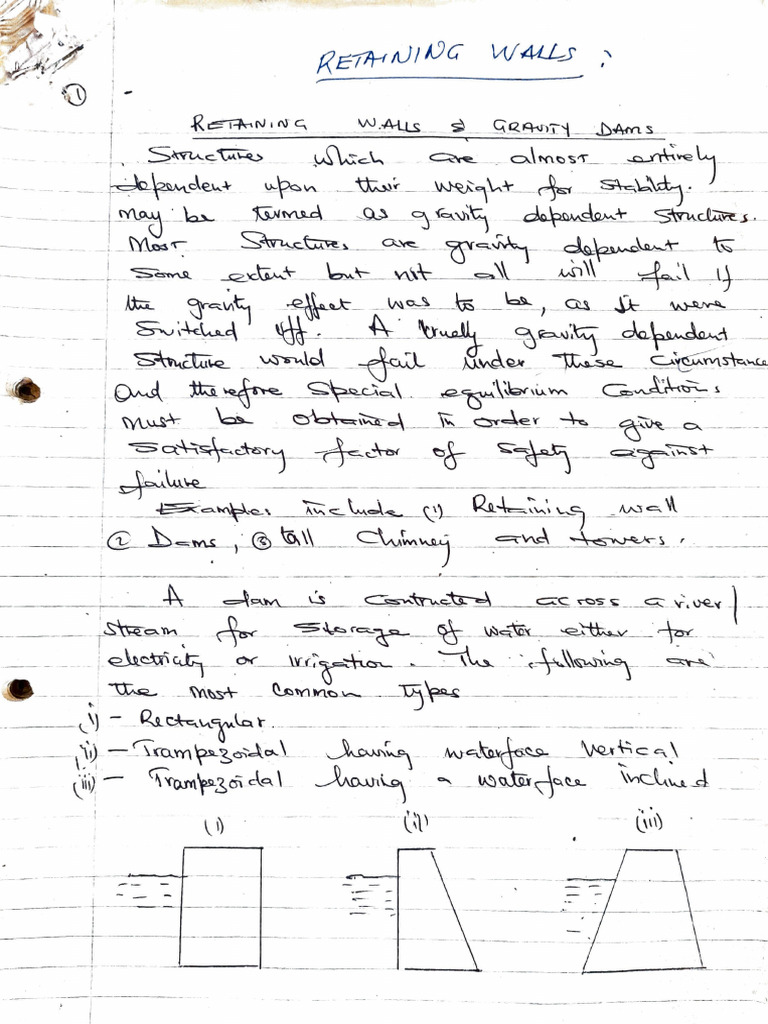 RETAINING WALLS:
①
RETAINING WALLS & GRAVITY DAMS
Structures which are almost entirely
dependent upon their weight for stability.
may be termed as gravity dependent structures.
Most Structures are gravity dependent to
Some extent but not all will fail if
the gravity effect was to be, as it were
Switched off. A truely gravity dependent
Structure would fail under these circumstance
And therefore Special equilibrium Conditions
must be obtained in order to give a
Satisfactory factor of safety against
failure
Examples include (1) Retaining wall
② Dams, ③ tall Chimney and towers.
A dam is contructed across a river/
stream for storage of water either for
electricity or irrigation. The following are
the most common types
i) - Rectangular.
(ii) - Trampezoidal having waterface vertical
(iii) - Trampezoidal having a waterface inclined
(i) (ii) (iii)